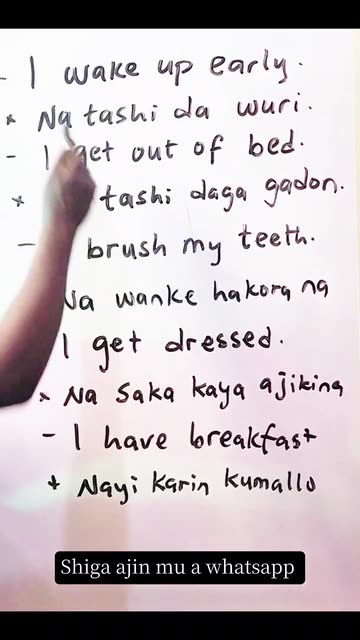 - I wake up early.
* Na tashi da wuri.
- I get out of bed.
* tashi daga gadon.
- brush my teeth.
Na wanke hakora na
I get dressed.
* Na saka kaya ajikina
- I have breakfast
* Nayi karin kumallo
Shiga ajin mu a whatsapp